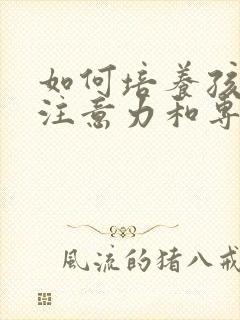 如何培養孩
注意力和專
風流的猪八戒